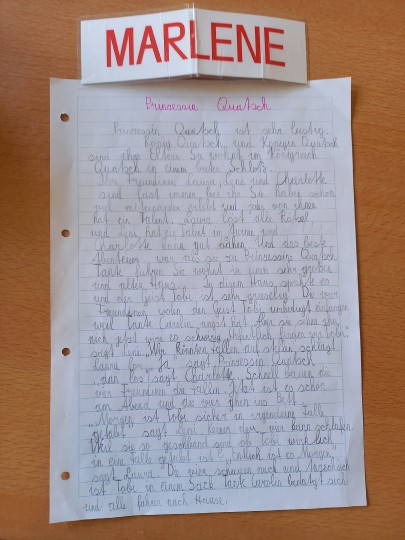 MARLENE
Prinzessin Quatsch
Prinzessin Quatsch ist sehr lustig.
König Quatsch und Königin Quatsch
sind ihre Eltern. Sie wohnt im Königreich
Quatsch in einem bunten Schloss.
Ihre Freundinnen Laura, Leni und Charlotte
sind fast immer bei ihr. Sie haben schon
viel miteinander erlebt und jede von ihnen
hat ein Talent. Laura löst alle Rätsel
und Leni hat ein Talent im Turnen und
Charlotte kann gut nähen. Und das beste
Abenteuer war als sie zu Prinzessin Quatsch
Tante fuhren. Sie wohnt in einem sehr großen
und alten Haus. In diesem Haus spukte es
und der Geist Tobi ist sehr gruselig. Die vier
Freundinnen wollen den Geist Tobi unbedingt einfangen
weil Tante Carolin angst hat. Aber sie sehen schon
noch jetzt wird es schwierig. Hoffentlich fangen wir Tobi."
sagt Leni. „Wir könnten Fallen auf stellen, schlägt
Laura vor. „Ja", sagt Prinzessin Quatsch
„dan los" sagt Charlotte. Schnell bauen die
vier Freundinen die Fallen. Jetzt ist es schon
am Abend und die vier gehen ins Bett.
„Morgen ist Tobi sicher in irgendeine Falle
getabt" sagt Leni, keiner der vier kann schlafen.
Weil sie so gespannd sind ob Tobi wirklich
in eine Falle getabt ist. Entlich ist es Morgen,
sagt Laura. Die vier schauen nach und tatsächlich
ist Tobi in einem Sack. Tante Carolin bedankt sich
und alle fahren nach Hause.